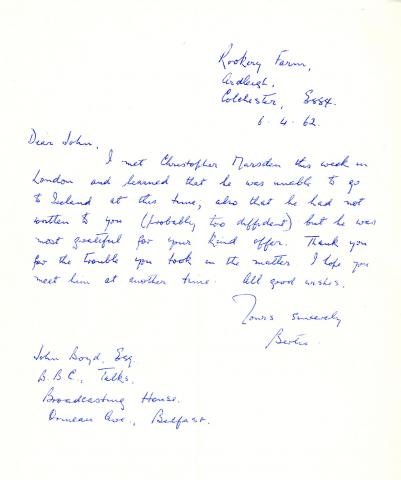 Rookery Farm,
Ardleigh,
Colchester, Essex.
6.4.62.
Dear John,
I met Christopher Marsden this week in
London and learned that he was unable to go
to Ireland at this time, also that he had not
written to you (probably too diffident) but he was
most grateful for your kind offer. Thank you
for the trouble you took in the matter. I hope you
meet him at another time. All good wishes.
Yours sincerely
Bertie
John Boyd, Esq.
B.B.C., Talks.
Broadcasting House.
Ormeau Ave., Belfast.